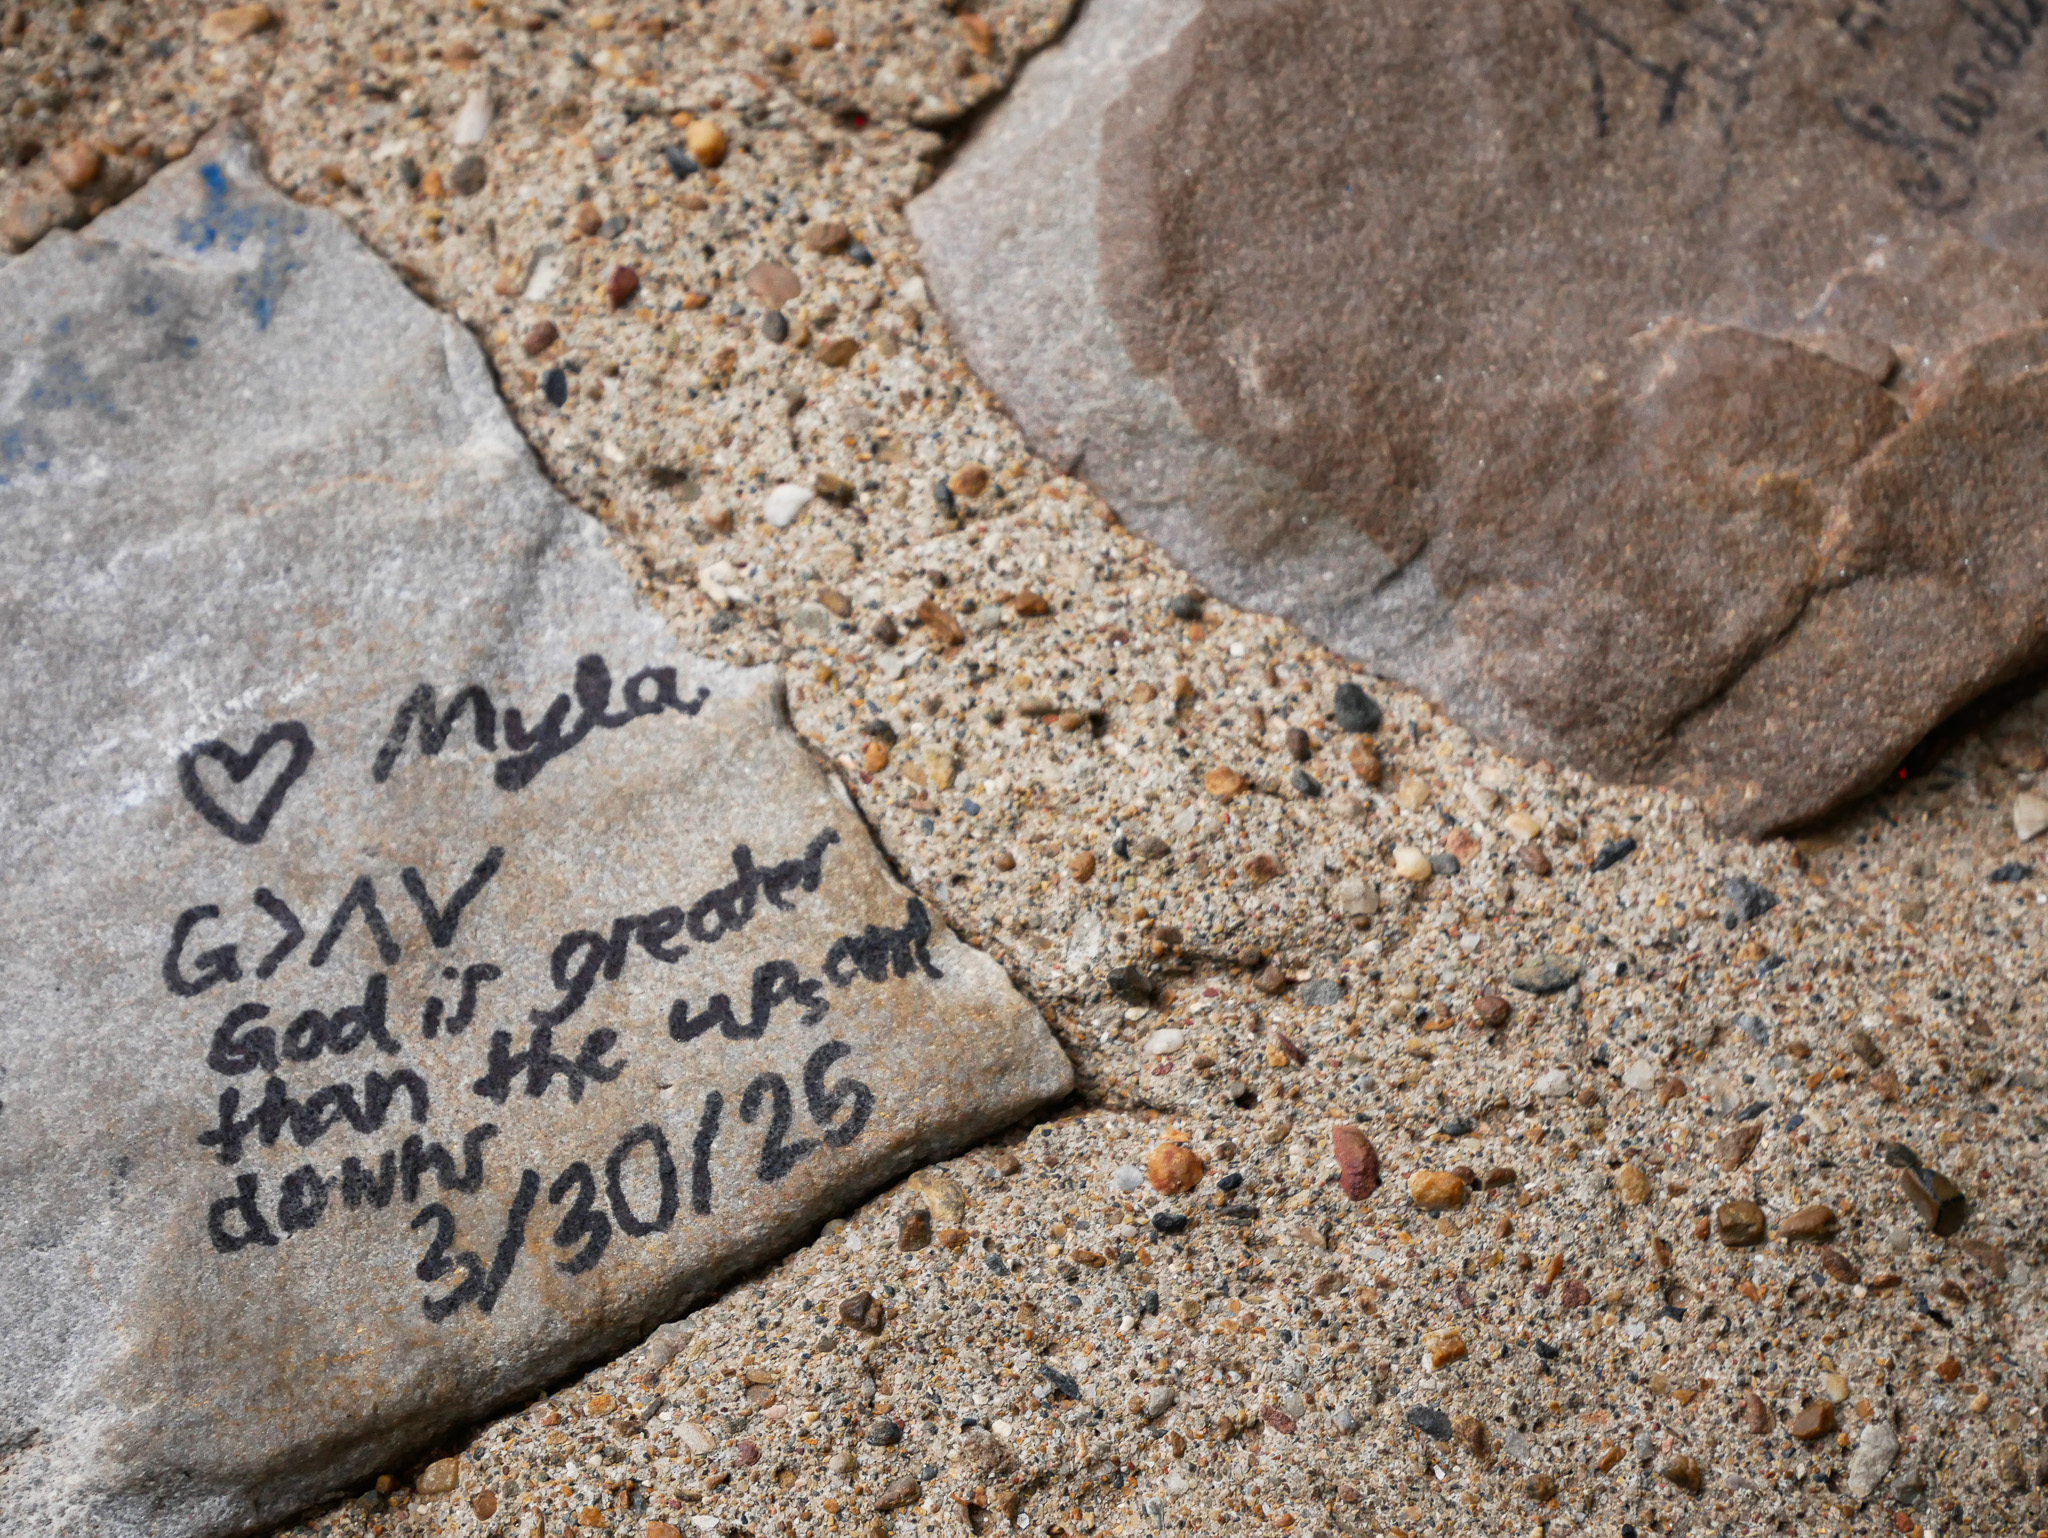 ♡ Myla
G>ΛV
God is greater
than the ups and
downs
3/30/25